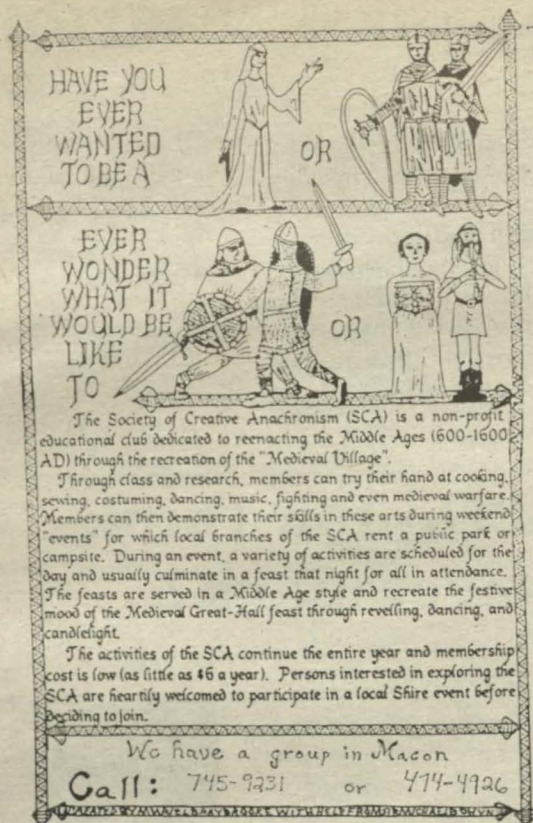 HAVE YOU
EVER
WANTED
TO BE A
OR
EVER
WONDER
WHAT IT
WOULD BE
LIKE
TO
OR
The Society of Creative Anachronism (SCA) is a non-profit
educational club dedicated to reenacting the Middle Ages (600-1600
AD) through the recreation of the "Medieval Village".
Through class and research, members can try their hand at cooking,
sewing, costuming, dancing, music, fighting and even medieval warfare.
Members can then demonstrate their skills in these arts during weekend
"events" for which local branches of the SCA rent a public park or
campsite. During an event, a variety of activities are scheduled for the
day and usually culminate in a feast that night for all in attendance.
The feasts are served in a Middle Age style and recreate the festive
mood of the Medieval Great-Hall feast through revelling, dancing, and
candlelight.
The activities of the SCA continue the entire year and membership
cost is low (as little as $6 a year). Persons interested in exploring the
SCA are heartily welcomed to participate in a local Shire event before
deciding to join.
We have a group in Macon
Call: 745-9231 or 474-4926
WITH HELP FROM